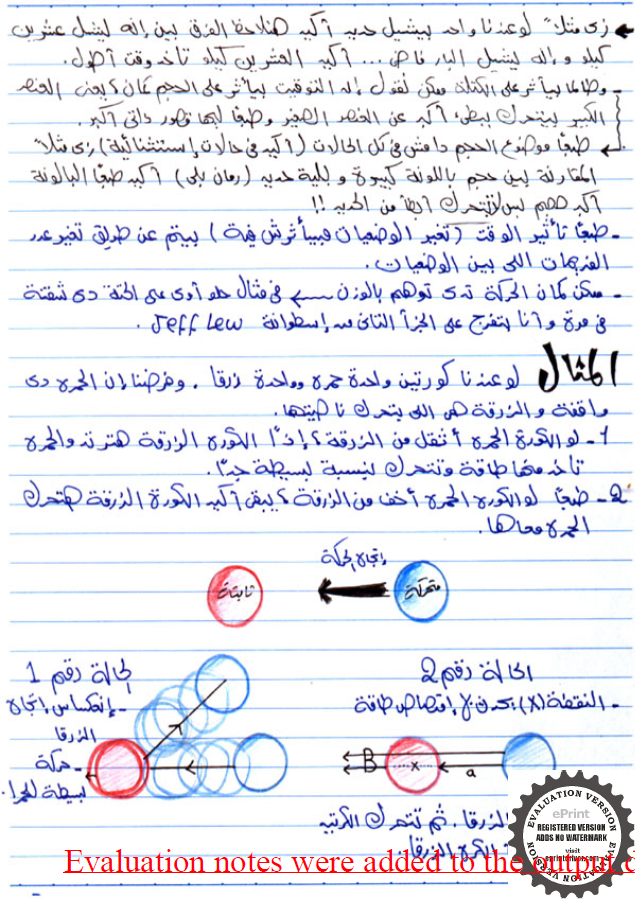 زى مثلاً لو عندنا واحد بيشيل حديد أكيد هنلاحظ الفرق بين إنه ليشيل عشرين
كيلو و إنه ليشيل البار فاضى ... أكيد العشرين كيلو تاخد وقت أطول.
- وطالما بيأثر على الكتلة ممكن نقول إنه التوقيت بيأثر على الحجم كمان ؟ يعنى العنصر
الكبير بيتحرك ببطئ أكبر عن العنصر الصغير وطبعًا ليها قصور ذاتى أكبر.
طبعًا موضوع الحجم دا مش فى كل الحالات (أكيد فى حالات إستثنائية) زى مثلاً
المقارنة بين حجم بالونة كبيرة و بلية حديد (رمان بلى) أكيد طبعًا البالونة
أكبر حجم بس لا تتحرك أبطأ من الحديد !!
- طبعًا تأثير الوقت (تغير الوضعيات فبيأثرش فية) بيتم عن طريق تغير عدد
الفريمات اللى بين الوضعيات.
- ممكن كمان الحركة تدى توهم بالوزن ← فى مثال حلو أوى على الحتة دى شفتة
فى مرة و أنا بتفرج على الجزأ التانى من إسطوانة Jeff Lew.
المثال لو عندنا كورتين واحدة حمره وواحدة زرقا . وفرضنا إن الحمره دى
واقفة والزرقة هى اللى بتتحرك ناحيتها.
1- لو الكورة الحمره أثقل من الزرقة ؟ إذًا الكوره الزرقة هترتد والحمره
تاخد منها طاقة وتتحرك بنسبة بسيطة جدًا.
2- طبعًا لو الكوره الحمره أخف من الزرقة ؟ يبقى أكيد الكورة الزرقة هتحرك
الحمره معاها.
إتجاه الحركة
ثابتة
متحركة
الحالة رقم 1
- إنعكاس إتجاه
الزرقا
- حركة
بسيطة للحمرا.
الحالة رقم 2
- النقطة (x) يحدث إمتصاص طاقة
B
x
a
الزرقا . ثم تتحرك الكرتين
الكرة الزرقا.
EVALUATION VERSION
ePrint
REGISTERED VERSION
ADDS NO WATERMARK
visit
EVALUATION VERSION
Evaluation notes were added to the output d